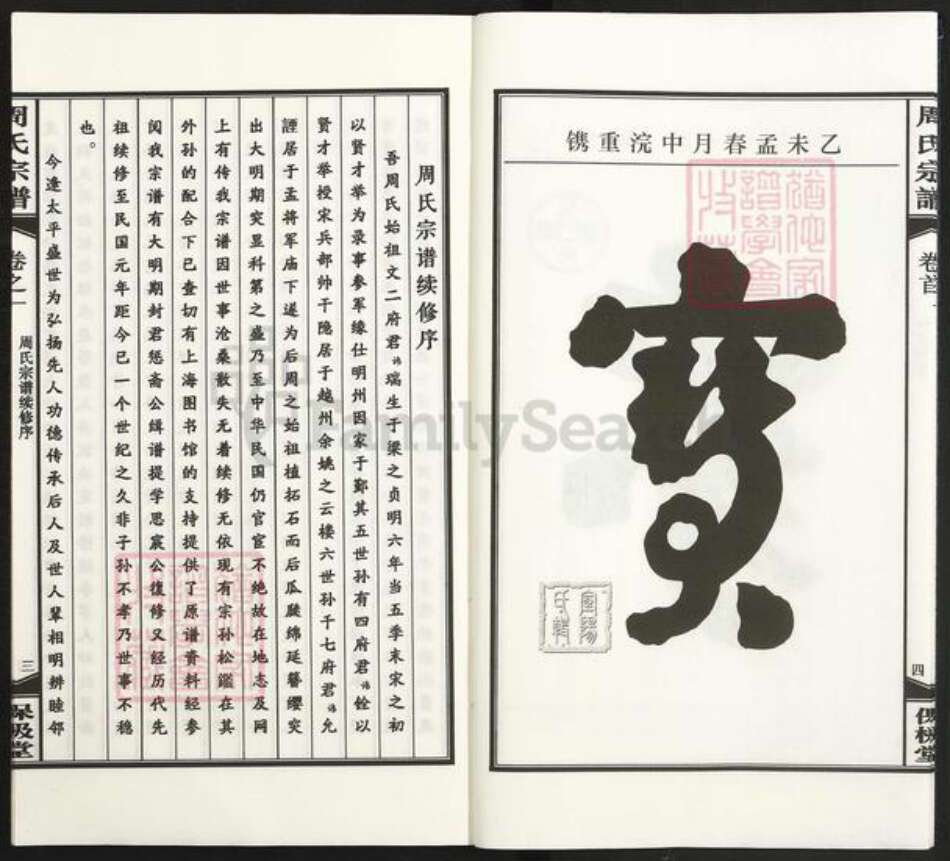 乙未孟春月中浣重镌
寳
周氏宗譜
卷首
四
周氏宗谱续修序
吾周氏始祖文二府君讳瑞生于梁之贞明六年当五季末宋之初
以贤才举为录事参军缘仕明州因家于鄞其五世孙有四府君讳铨以
贤才举授宋兵部帅干隐居于越州余姚之云楼六世孙千七府君讳允
諲居于孟将军庙下遂为后周之始祖植拓石而后瓜瓞绵延簪缨突
出大明期突显科第之盛乃至中华民国仍官宦不绝故在地志及网
上有传我宗谱因世事沧桑散失无着续修无依现有宗孙松鑑在其
外孙的配合下已查切有上海图书馆的支持提供了原谱資料经参
阅我宗谱有大明期封君惩斋公缉谱提学思宸公復修又经历代先
祖续修至民国元年距今已一个世纪之久非子孙不孝乃世事不稳
也。
今逢太平盛世为弘扬先人功德传承后人及世人辈相明辨睦邻
周氏宗谱
卷之一
周氏宗谱续修序
三
保极堂
FamilySearch